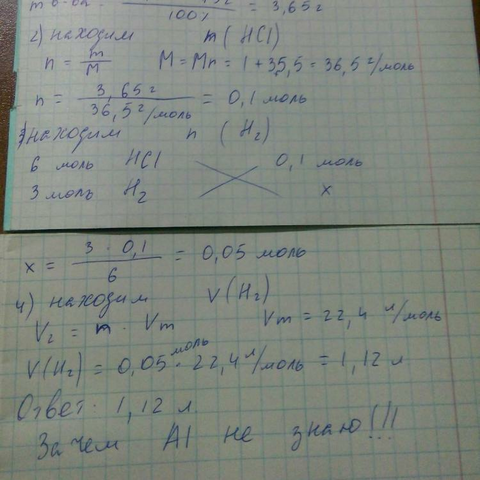 100% = 3,65 г
2) находим m (HCl)
n = m/M M = Mr = 1 + 35,5 = 36,5 г/моль
n = 3,65 г / 36,5 г/моль = 0,1 моль
3) находим n (H₂)
6 моль HCl 0,1 моль
3 моль H₂ x
x = 3 · 0,1 / 6 = 0,05 моль
4) находим V(H₂)
V₂ = n · Vm Vm = 22,4 л/моль
V(H₂) = 0,05 моль · 22,4 л/моль = 1,12 л
Ответ: 1,12 л
Зачем Al не знаю!!!